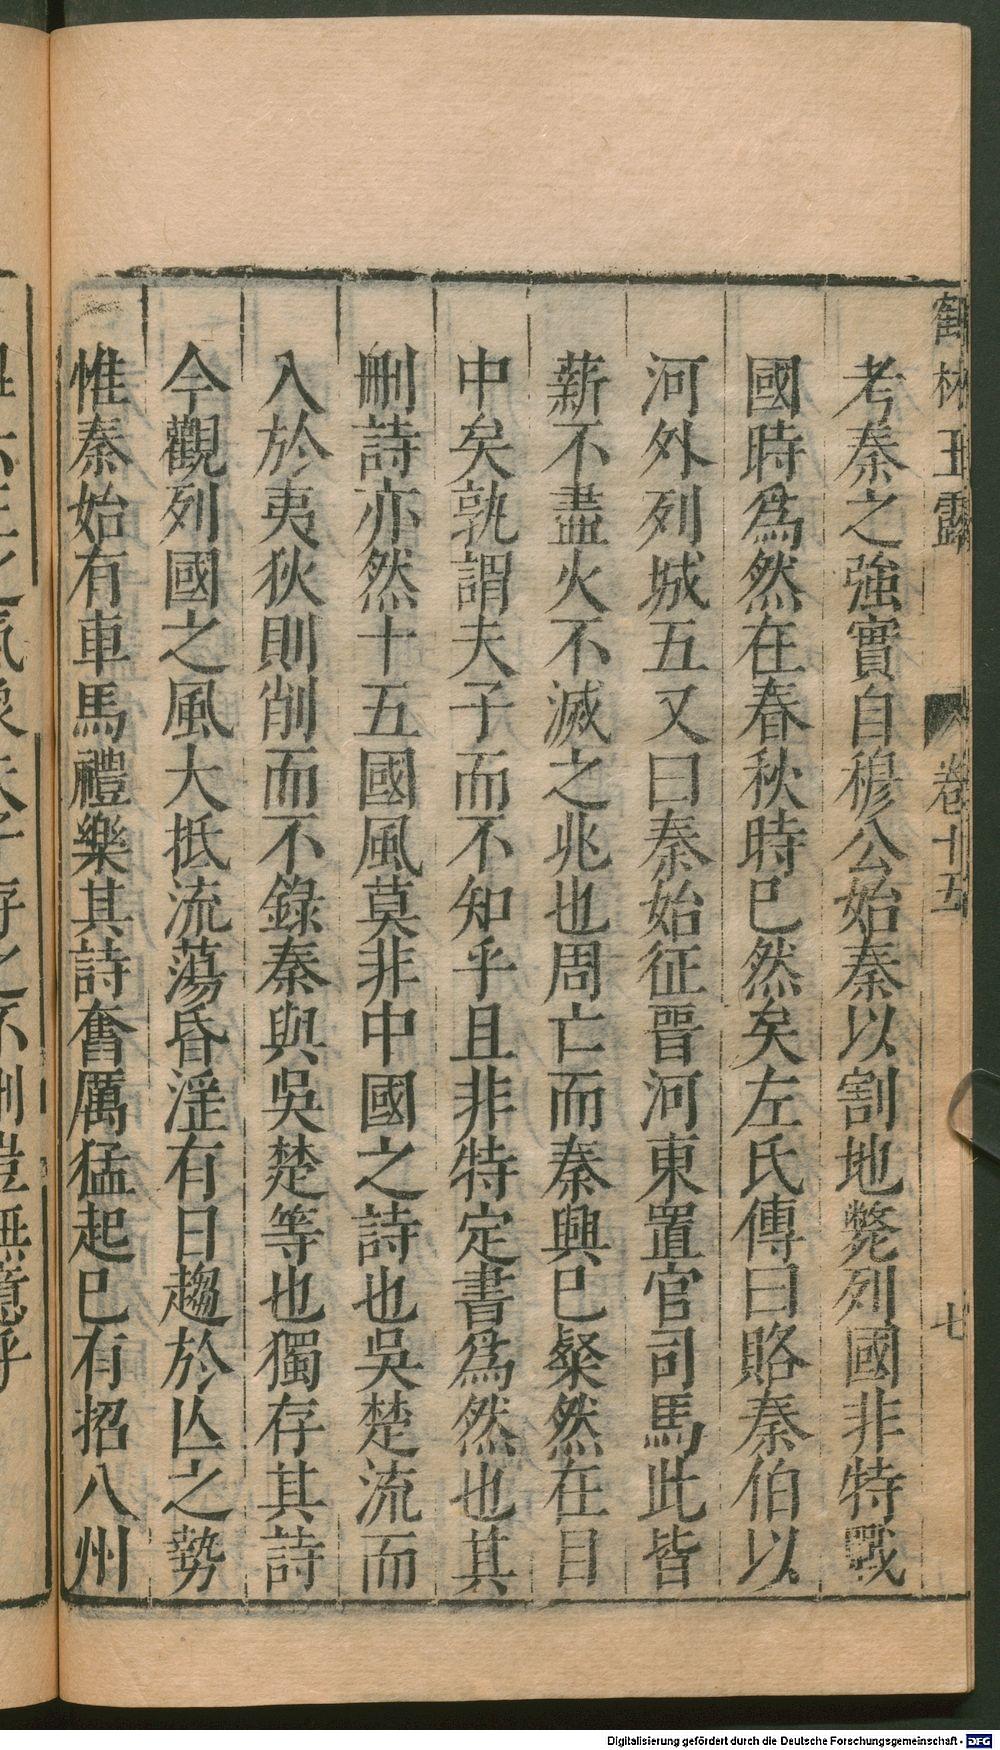 鶴林玉露
卷十五
七
考秦之強實自穆公始秦以割地斃列國非特戰
國時爲然在春秋時已然矣左氏傳曰賂秦伯以
河外列城五又曰秦始征晉河東置官司馬此皆
薪不盡火不滅之兆也周亡而秦興已粲然在目
中矣孰謂夫子而不知乎且非特定書爲然也其
刪詩亦然十五國風莫非中國之詩也吳楚流而
入於夷狄則削而不錄秦與吳楚等也獨存其詩
今觀列國之風大抵流蕩昏淫有日趨於亾之勢
惟秦始有車馬禮樂其詩奮厲猛起已有招八州
之氣象夫子存之不刪豈無意乎
Digitalisierung gefördert durch die Deutsche Forschungsgemeinschaft - DFG